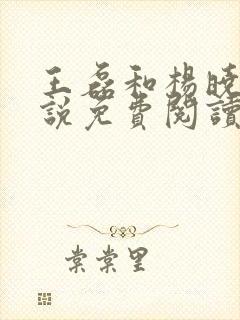 王磊和楊曉
說免費閱讀
棠棠里